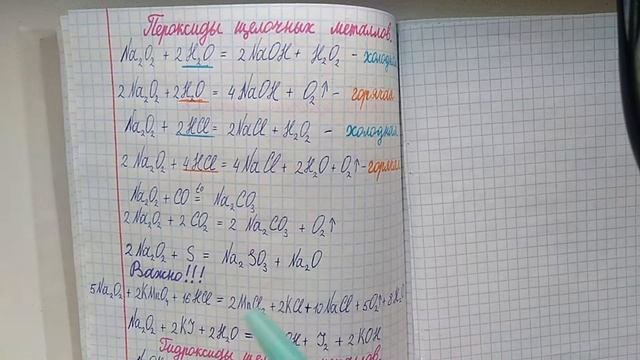 Пероксиды щелочных металлов.
Na₂O₂ + 2H₂O = 2NaOH + H₂O₂ - холодная
2Na₂O₂ + 2H₂O = 4NaOH + O₂↑ - горячая
Na₂O₂ + 2HCl = 2NaCl + H₂O₂ - холодная
2Na₂O₂ + 4HCl = 4NaCl + 2H₂O + O₂↑ - горячая
Na₂O₂ + CO =t°= Na₂CO₃
2Na₂O₂ + 2CO₂ = 2Na₂CO₃ + O₂↑
2Na₂O₂ + S = Na₂SO₃ + Na₂O
Важно!!!
5Na₂O₂ + 2KMnO₄ + 16HCl = 2MnCl₂ + 2KCl + 10NaCl + 5O₂↑ + 8H₂O
Na₂O₂ + 2KJ + 2H₂O = OH + J₂ + 2KOH
Гидроксиды металлов.